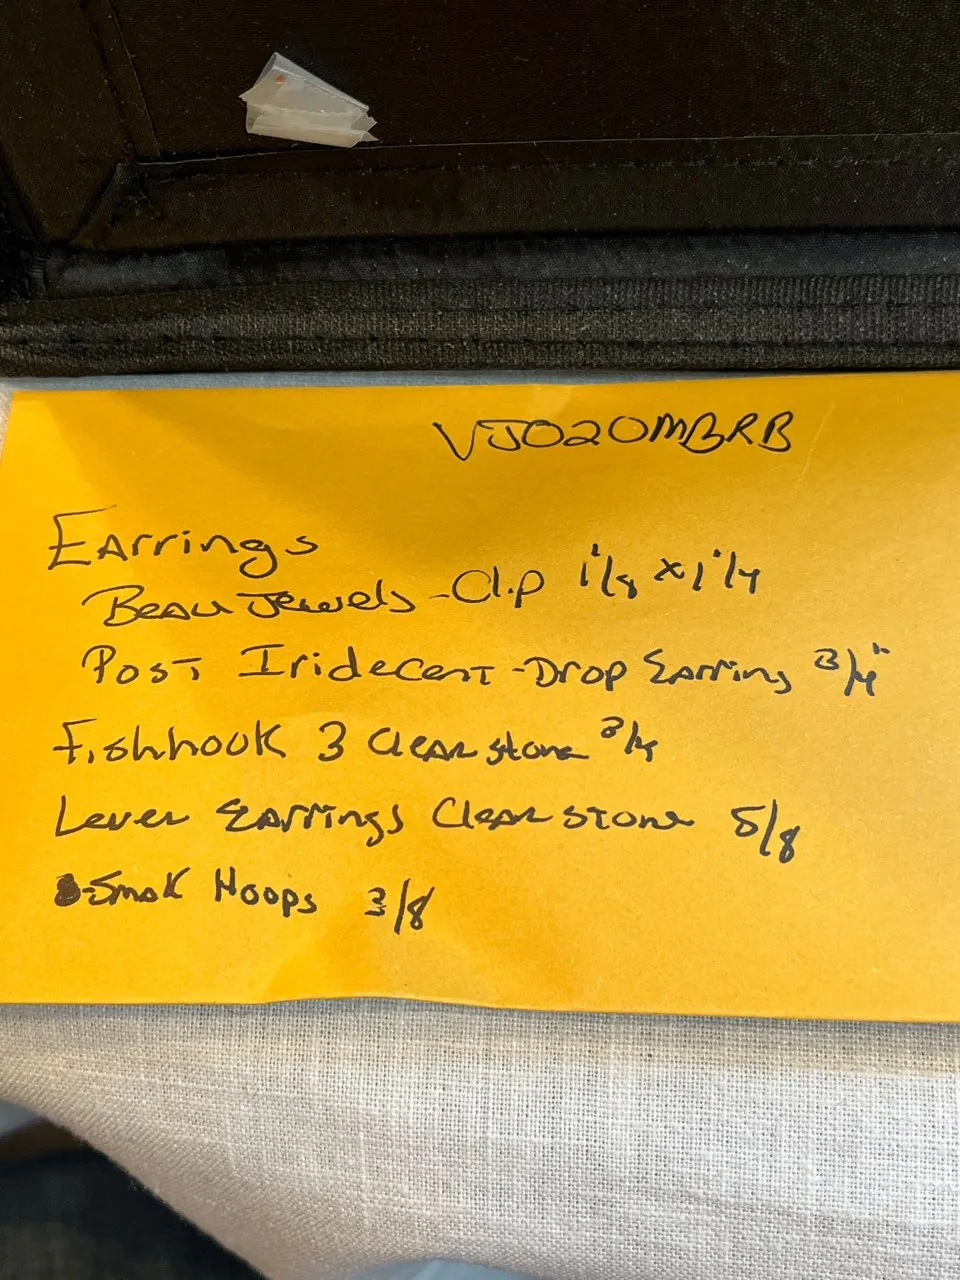 VJ020MBRB
Earrings
Beau Jewels - Clip 1 1/8 x 1 1/4
Post Iridecent - Drop Earring 3/4"
Fishhook 3 Clear stone 3/4
Lever Earrings Clear stone 5/8
Hoops 3/8